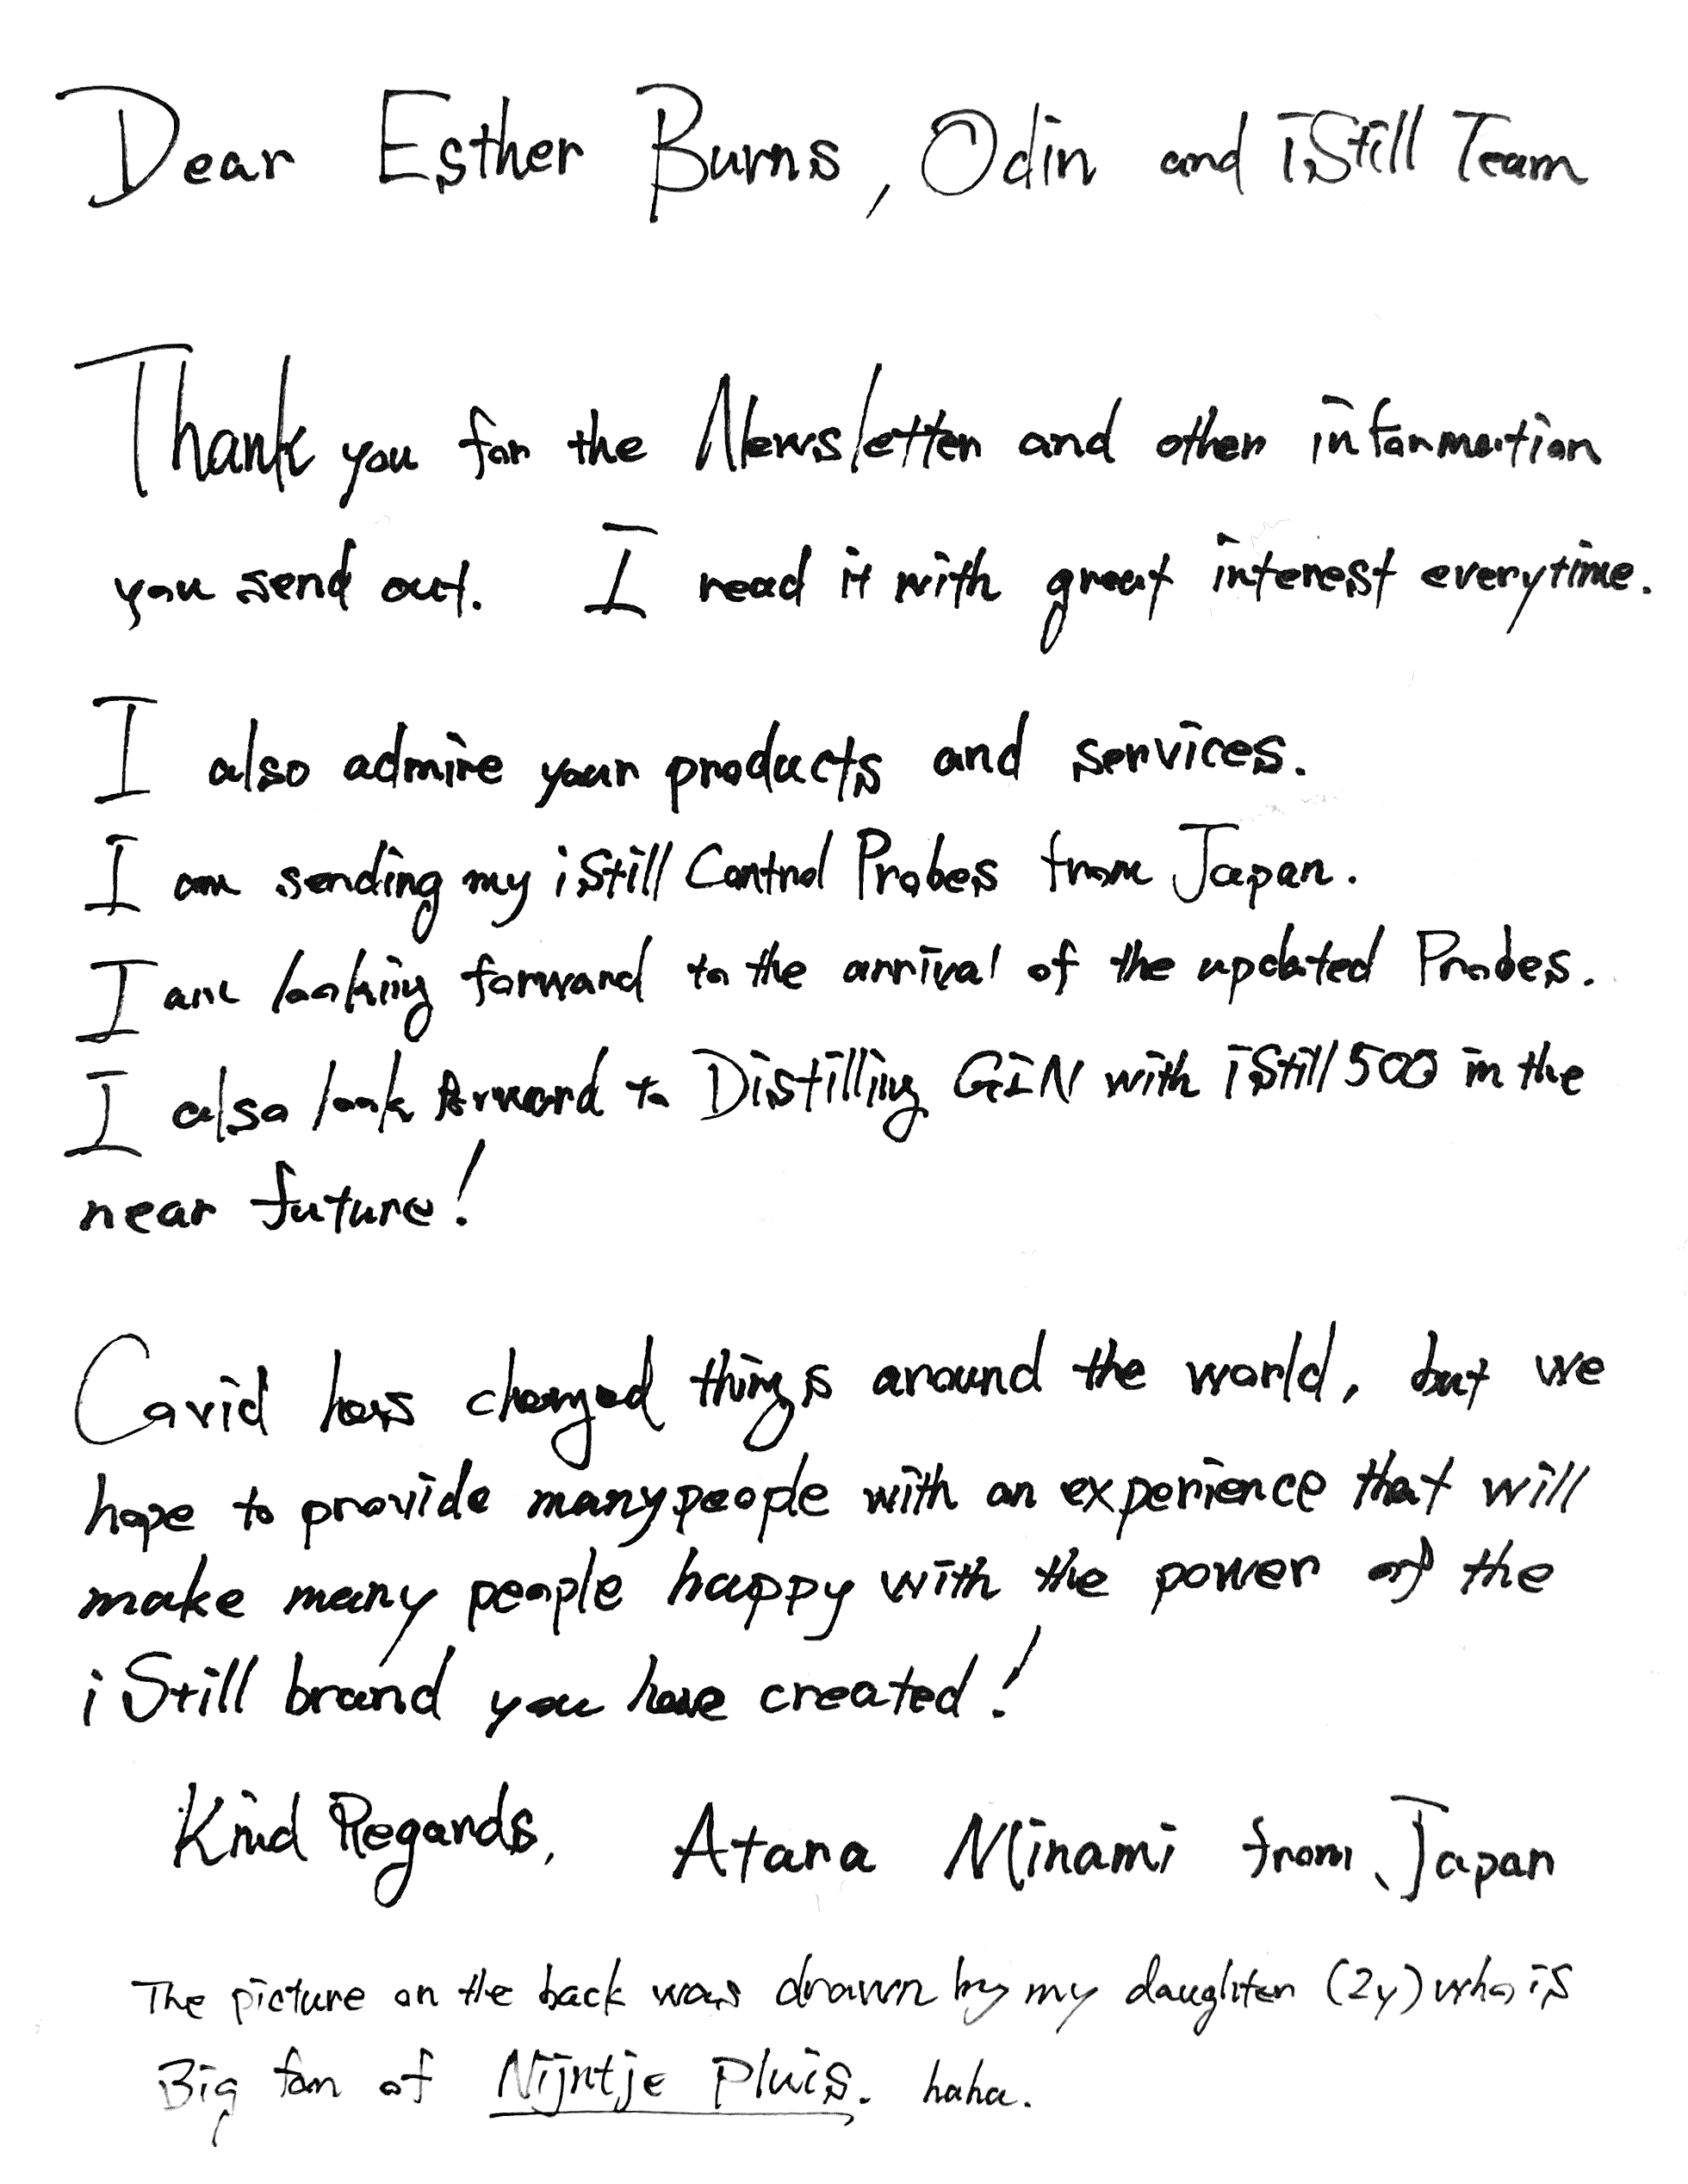 Dear Esther Burns, Odin and iStill Team
Thank you for the Newsletter and other information
you send out. I read it with great interest everytime.
I also admire your products and services.
I am sending my iStill Control Probes from Japan.
I am looking forward to the arrival of the updated Probes.
I also look forward to Distilling GiN with iStill 500 in the
near future!
Covid has changed things around the world, but we
hope to provide many people with an experience that will
make many people happy with the power of the
iStill brand you have created!
Kind Regards, Atara Minami from Japan
The picture on the back was drawn by my daughter (2y) who is
Big fan of Nijntje Pluis. haha.